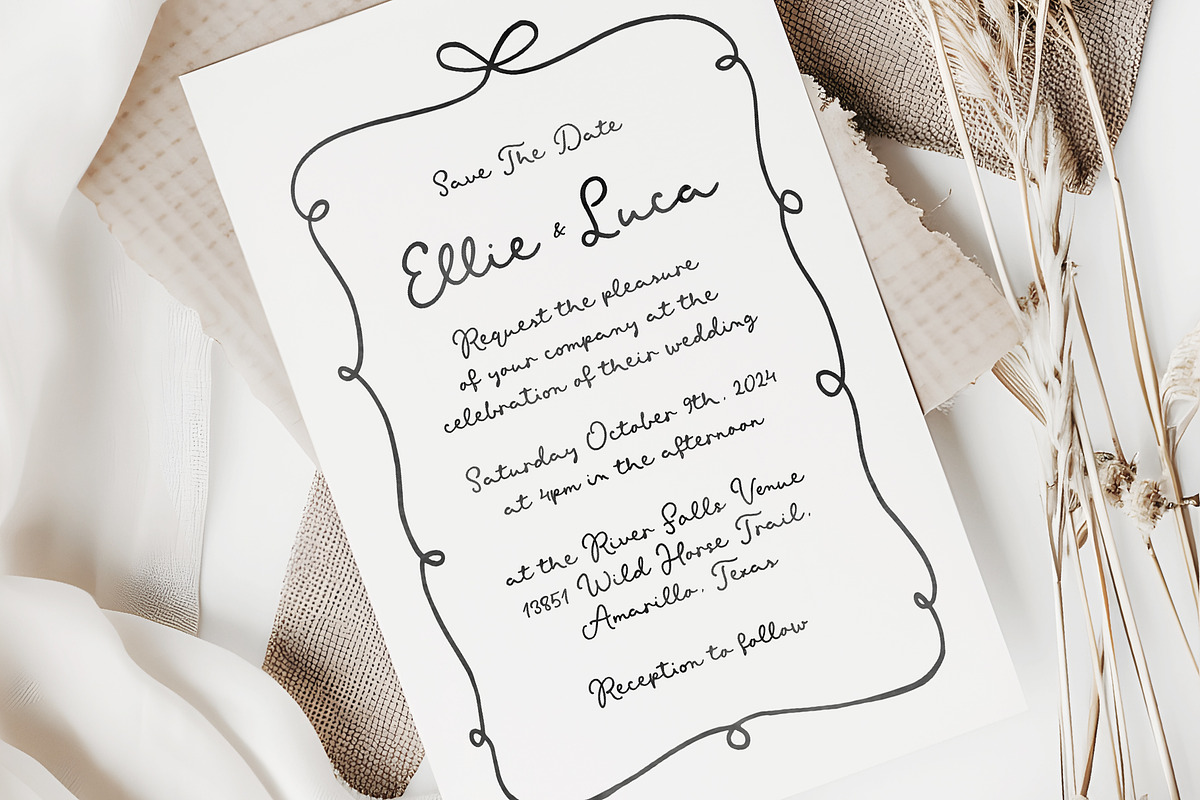 Save The Date
Ellie & Luca
Request the pleasure
of your company at the
celebration of their wedding
Saturday October 9th, 2024
at 4pm in the afternoon
at the River Falls Venue
13851 Wild Horse Trail,
Amarillo, Texas
Reception to follow